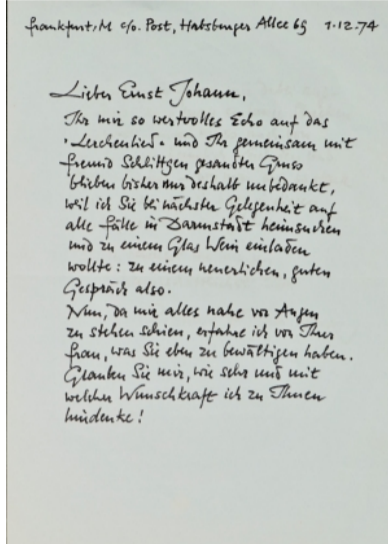 Frankfurt, M c/o. Post, Habsburger Allee 69 1.12.74
Lieber Ernst Johann,
Ihr mir so wertvolles Echo auf das
"Lerchenlied" und Ihr gemeinsam mit
Freund Schlittgen gesandter Gruss
blieben bisher nur deshalb unbedankt,
weil ich Sie bei nächster Gelegenheit auf
alle Fälle in Darmstadt heimsuchen
und zu einem Glas Wein einladen
wollte: zu einem neuerlichen, guten
Gespräch also.
Nun, da mir alles nahe vor Augen
zu stehen schien, erfahre ich von Ihrer
Frau, was Sie eben zu bewältigen haben.
Glauben Sie mir, wie sehr und mit
welcher Wunschkraft ich zu Ihnen
hindenke!